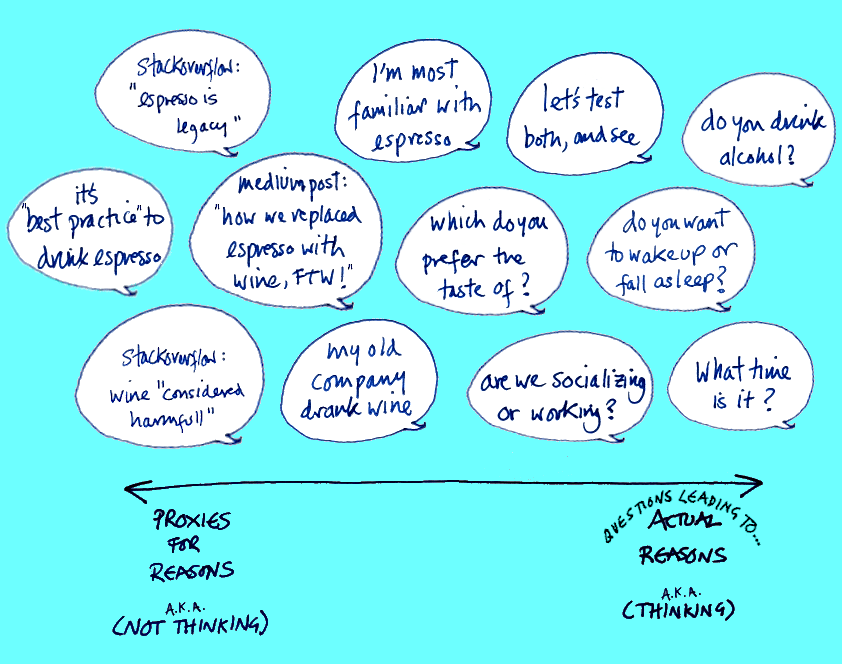 Stackoverflow:
"espresso is
legacy"
I'm most
familiar with
espresso
let's test
both, and see
do you drink
alcohol?
it's
"best practice" to
drink espresso
medium post:
"how we replaced
espresso with
wine, FTW!"
which do you
prefer the
taste of?
do you want
to wake up or
fall asleep?
Stackoverflow:
wine "considered
harmfull"
my old
company
drank wine
are we socializing
or working?
What time
is it?
PROXIES
FOR
REASONS
A.K.A.
(NOT THINKING)
QUESTIONS LEADING TO...
ACTUAL
REASONS
A.K.A.
(THINKING)